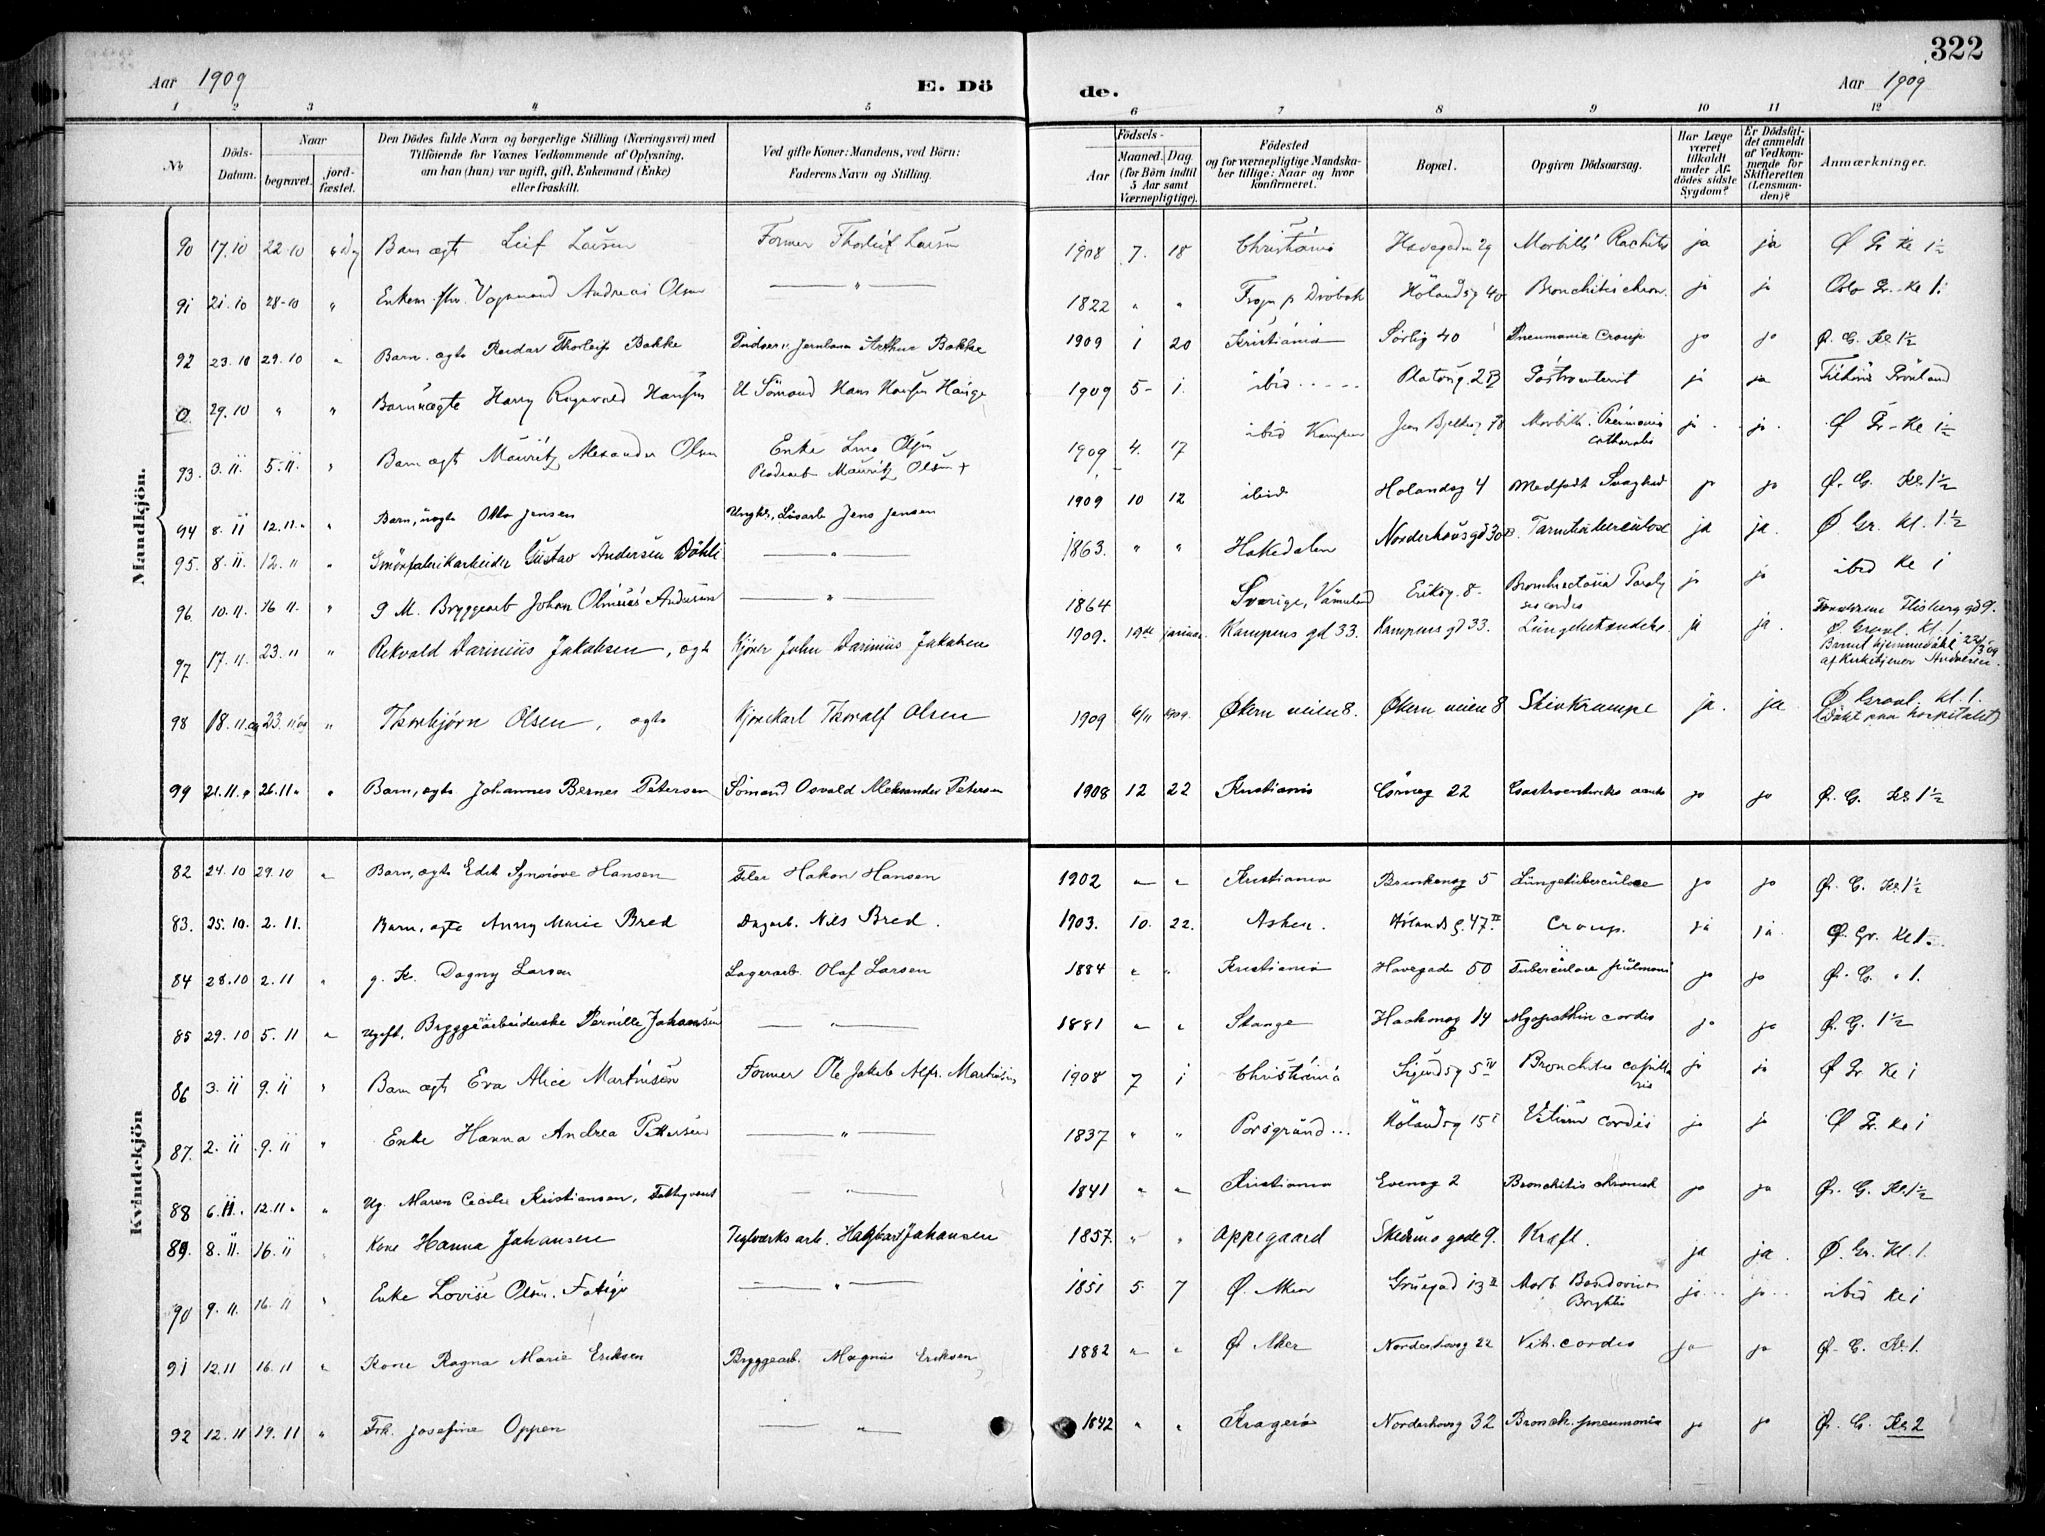 322
Aar 1909 E. Döde. Aar 1909
1 2 3 4 5 6 7 8 9 10 11 12
No
Döds-Datum.
Naar
begravet.
jordfæstet.
Den Dödes fulde Navn og borgerlige Stilling (Næringsvei) med
Tilföiende for Voxnes Vedkommende af Oplysning,
om han (hun) var ugift, gift, Enkemand (Enke)
eller fraskilt.
Ved gifte Koner: Mandens, ved Börn:
Faderens Navn og Stilling.
Födsels-
Aar
Maaned. Dag.
(for Börn indtil
5 Aar samt
Værnepligtige).
Födested
og for værnepligtige Mandskaber tillige: Naar og hvor
konfirmeret.
Bopæl.
Opgiven Dödsaarsag.
Har Læge
været
tilkaldt
under Afdödes sidste
Sygdom?
Er Dödsfaldet anmeldt
af Vedkommende for
Skifteretten
(Lensmanden)?
Anmærkninger.
Mandkjön.
90 17.10 22.10 Barn ægte Leif Larsen Former Thorleif Larsen 1908 7. 18 Christiania Havegaden 29 Morbilli Rachitis ja ja Ø Gr Kl 1½
91 21.10 28-10 " Enkem. fhv. Vognmand Andreas Olsen — " — 1822 " " Frogn p Drøbak Hölandsg 40 Bronchitis chron. ja ja Oslo Gr. Kl 1.
92 23.10 29.10 " Barn. ægte Reidar Thorleif Bakke Arthur Bakke 1909 1 20 Kristiania Sörlig 40 Pneumonia Croup ja ja Ø. G. Kl 1½
0. 29.10 " " Barn uægte Harry Ragnvald Hansen U Sömand Hans Hansen Hauge 1909 5- 1. ibid Platousg. 2B Gastroenterit ja ja Tilhörer Grönland
93. 3.11. 5.11. " Barn ægte Mauritz Alexander Olsen Enke Olsen
Mauritz Olsen + 1909 4. 17 ibid Kampen Jens Bjelkesg 78 Morbilli. Pneumonia
catharalis ja ja. Ø Gr- Kl 1½
94 8.11 12.11. " Barn, uægte Otto Jensen Ungk., Lösarb Jens Jensen 1909 10 12 ibid Hölandsg 4 Medfödt Svaghed ja ja Ø. G. Kl 1½
95. 8.11. 12.11 " Smörfabrikarbeider Gustav Andersen Döhli — " — 1863. " " Hakedalen Norderhousgd 30 B. Tarmtuberculose ja ja. Ø Gr. Kl. 1.½
96 10.11. 16 11. " g M. Bryggearb Johan Olinius Andersen — " — 1864 Sverige, Värmland Eriksg. 8- ja ja ibid Kl 1
97 17.11. 23.11 " Rikvald Darinius Jakobsen, ægte Kjörer John Darinius Jakobsen 1909. januar Kampens gd 33. Kampens gd 33. Lungebetændelse. ja ja. Flisberg gd 9.
Ø. Gravl. Kl. 1.
Hjemmedöbt
af Kirketjener Andersen.
98 18.11.09 23.11.09 " Thorbjörn Olsen, ægte Kjörekarl Thoralf Olsen 1909 6/11 1909. Økern veien 8. Økern veien 8 Stivkrampe ja. ja Ø Gravl. Kl. 1.
(Döbt paa hospitalet)
99 21.11. " 26.11 " " Barn, ægte Johannes Bernes Petersen Sömand Osvald Aleksander Petersen 1908 12 22 Kristiania 22 Gastroenterites acuta ja ja Ø. G. Kl 1½
Kvindekjön
82 24.10 29.10 " Barn, ægte Edit Synnöve Hansen Filer Hakon Hansen 1902 " " Kristiania 5 Lungetuberculose ja ja Ø. G. Kl 1½
83. 25.10. 2.11. Barn, ægte Anny Marie Bred Dagarb. Nils Bred. 1903. 10. 22. Asker. Hölands g. 47 II. Croup. ja ja. Ø. Gr. Kl 1.
84 28.10 2.11 " g. K. Dagny Larsen Lagerarb. Olaf Larsen 1884 " " Kristiania Havegade 50 Tuberculose pulmon ja ja Ø. G. " 1.
85 29.10 5.11 " Ugift. Bryggeåarbeiderske Pernille Johansen — " — 1881 " " Stange Haakonsg 14 Myopathia cordis ja ja Ø. G. 1½
86 3.11 9.11 " Barn ægte Eva Alice Martinsen Former Ole Jakob Alfr. Martinsen 1908 7 1 Christiania Sigurdsg 5 IV Bronchites capilla
ris ja ja Ø Gr. Kl 1
87. 2.11 9.11 " Enke Hanna Andrea Pettersen — " — 1837 " " Porsgrund... Hölandsg 15 I Vitium cordis ja ja Ø Gr. Kl 1
88 6.11. 12.11 " " Ug. Maren Cecilie Kristiansen, Fattigvæsnt — " — 1841 " " Kristiania Evensg 2 Bronchitis kronisk ja ja Ø. G. Kl 1½
89. 8.11. 16.11 " Kone Hanna Johansen Teglværks arb. Hagbart Johansen 1857. " " Oppegaard Skedsmo gade 9. Kræft. ja ja. Ø. Gr. Kl. 1.
90 9.11. 16.11 " Enke Lovise Olsen. Fattigv — " — 1851 5. 7 Ø. Aker Gruegad 13 II Morb
Brightii ja ja ibid Kl 1
91 12.11 16.11 " Kone Ragna Marie Eriksen Bryggearb. Magnus Eriksen 1882 " " Ø Aker Norderhovsg 22 Vit. cordis ja ja Ø. G. Kl 1.
92 12.11 19.11 " Frk. Josefine Oppen — " — 1842 " " Kragerø Norderhovsg 32 Bronch. pneumonia ja ja Ø. G. Kl 2